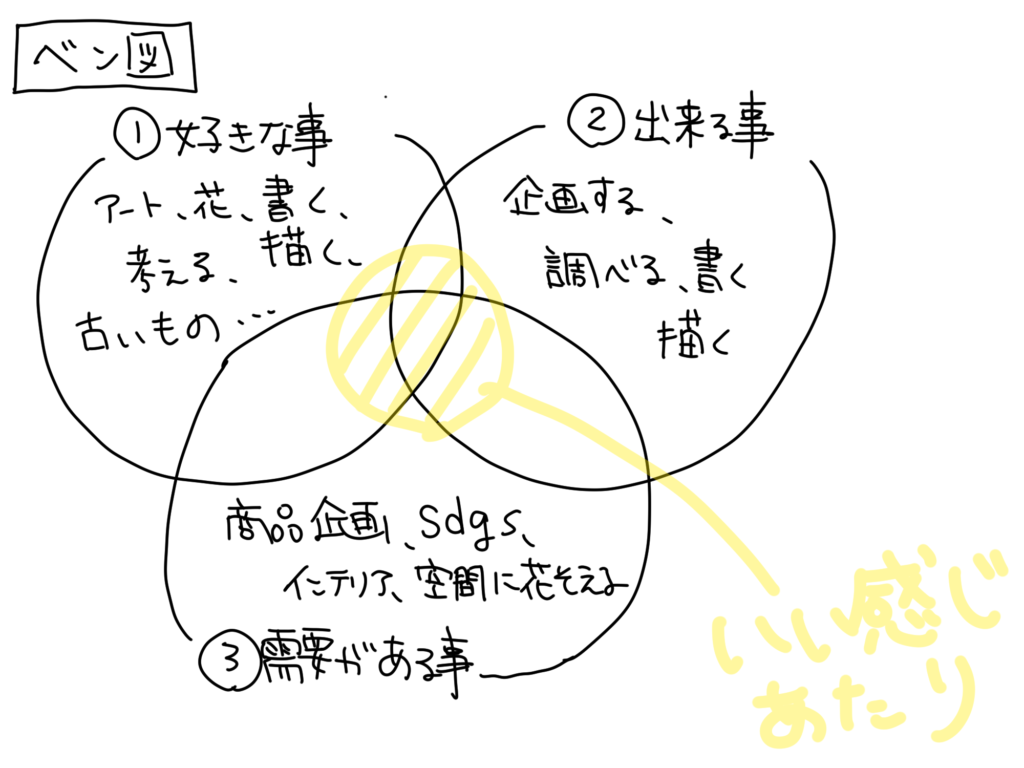 ベン図
①好きな事
アート、花、書く、
描く、
考える、
古いもの…
②出来る事
企画する、
調べる、書く
描く
商品企画、sdgs、
インテリア、空間に花そえる
③需要がある事
いい感じ
あたり